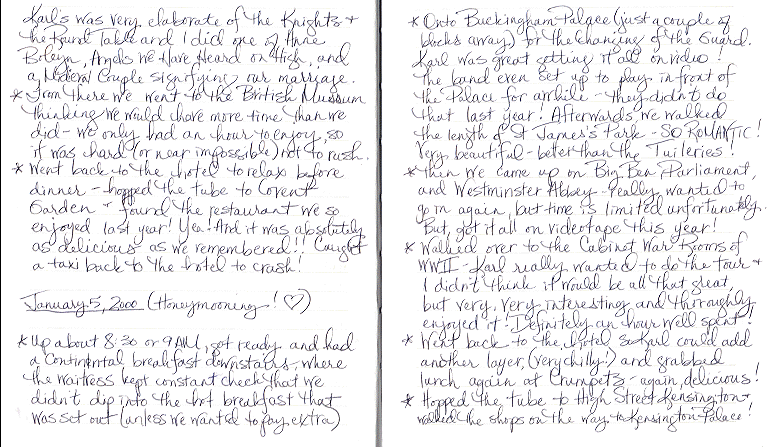 Karl's was very elaborate of the Knights &
the Round Table and I did one of Anne
Boleyn, Angels We Have Heard on High, and
a Medieval Couple signifying our marriage.
* From there we went to the British Museum
thinking we would have more time than we
did - we only had an hour to enjoy, so
it was hard (or near impossible) not to rush.
* Went back to the hotel to relax before
dinner - hopped the tube to Covent
Garden & found the restaurant we so
enjoyed last year! Yea! And it was absolutely
as delicious as we remembered!! Caught
a taxi back to the hotel to crash!
January 5, 2000 (Honeymooning! ♡)
* Up about 8:30 or 9 AM, got ready and had
a Continental breakfast downstairs, where
the waitress kept constant check that we
didn't dip into the hot breakfast that
was set out (unless we wanted to pay extra)
* Onto Buckingham Palace (just a couple of
blocks away) for the Changing of the Guard.
Karl was great getting it all on video!
The band even set up to play in front of
the Palace for awhile - they didn't do
that last year! Afterwards, we walked
the length of St James's Park - SO ROMANTIC!
Very beautiful - better than the Tuileries!
* Then we came up on Big Ben, Parliament,
and Westminster Abbey - really wanted to
go in again, but time is limited unfortunately.
But, got it all on videotape this year!
* Walked over to the Cabinet War Rooms of
WWII - Karl really wanted to do the tour &
I didn't think it would be all that great,
but very, very interesting and thoroughly
enjoyed it! Definitely an hour well spent!
* Went back to the hotel so Karl could add
another layer, (very chilly!) and grabbed
lunch again at Crumpetz - again, delicious!
* Hopped the tube to High Street Kensington &
walked the shops on the way to Kensington Palace!